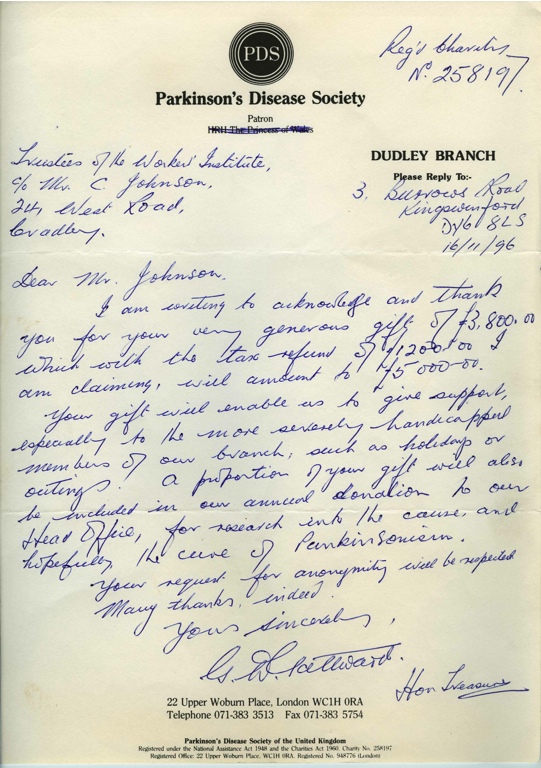 PDS
Reg'd Charity
No. 258197
Parkinson's Disease Society
Patron
HRH The Princess of Wales
Trustees of the Workers' Institute,
c/o Mr. C Johnson,
24, West Road,
Cradley.
DUDLEY BRANCH
Please Reply To:-
3, Burrows Road
Kingswinford
DY6 8LS
16/11/96
Dear Mr. Johnson.
I am writing to acknowledge and thank
you for your very generous gift of £3,800.00
which with the tax refund of £1200.00 I
am claiming, will amount to £5000.00.
Your gift will enable us to give support,
especially to the more severely handicapped
members of our branch, such as holidays or
outings. A proportion of your gift will also
be included in our annual donation to our
Head Office, for research into the cause, and
hopefully, the cure of Parkinsonism.
Your request for anonymity will be respected
Many thanks, indeed.
Yours sincerely,
Hon Treasurer
22 Upper Woburn Place, London WC1H 0RA
Telephone 071-383 3513 Fax 071-383 5754
Parkinson's Disease Society of the United Kingdom
Registered under the National Assistance Act 1948 and the Charities Act 1960. Charity No. 258197
Registered Office: 22 Upper Woburn Place, WC1H 0RA. Registered No. 948776 (London)